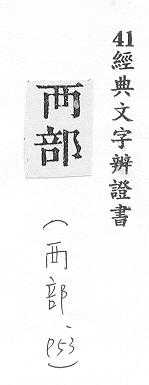 41經典文字辨證書
襾部
(襾部、P53)